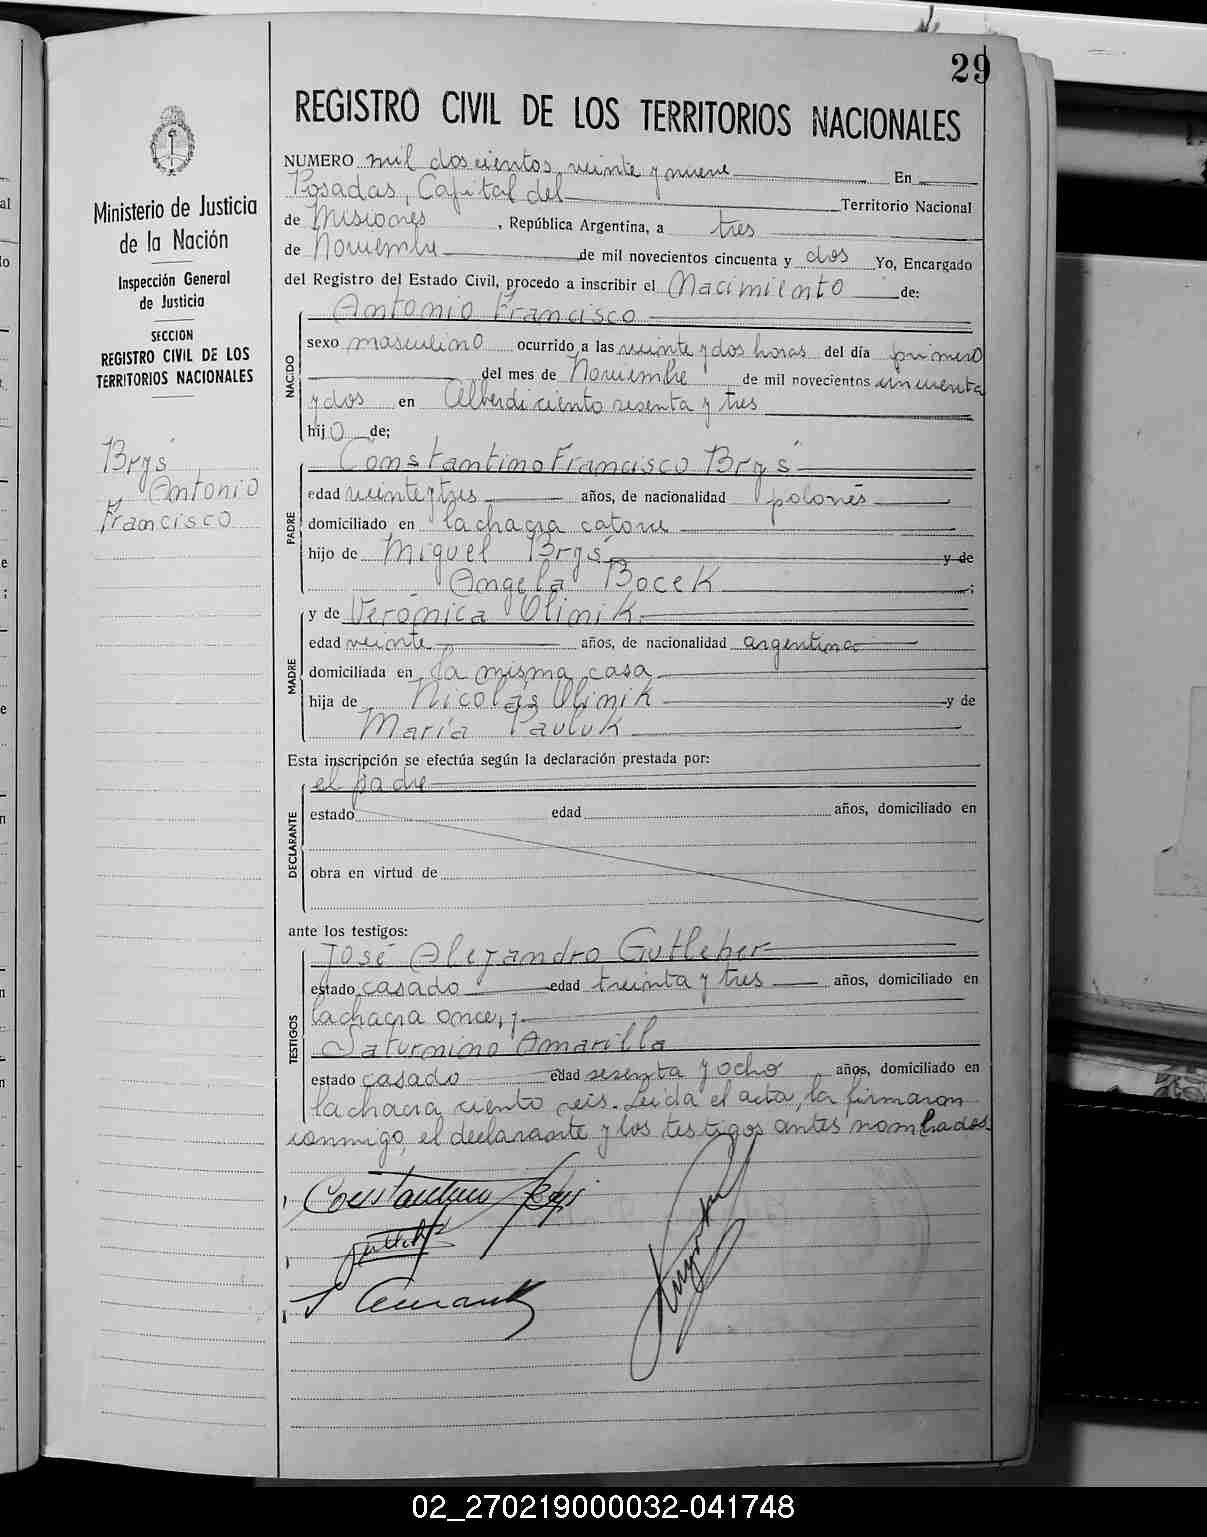 29
REGISTRO CIVIL DE LOS TERRITORIOS NACIONALES
Ministerio de Justicia
de la Nación
Inspección General
de Justicia
SECCION
REGISTRO CIVIL DE LOS
TERRITORIOS NACIONALES
Brys
Antonio
Francisco
NUMERO mil doscientos veinte y nueve En
Posadas, Capital del Territorio Nacional
de Misiones, República Argentina, a tres
de Noviembre de mil novecientos cincuenta y dos Yo, Encargado
del Registro del Estado Civil, procedo a inscribir el Nacimiento de:
Antonio Francisco
NACIDO
sexo masculino ocurrido a las veinte y dos horas del día primero
del mes de Noviembre de mil novecientos cincuenta
y dos en Alberdi ciento sesenta y tres
hijo de;
Constantino Francisco Brys
PADRE
edad veinte y tres años, de nacionalidad polonés
domiciliado en la chacra catorce
hijo de Miguel Brys y de
Angela Bocek ;
MADRE
y de Verónica Olinik
edad veinte años, de nacionalidad argentina
domiciliada en la misma casa
hija de Nicolás Olinik y de
María Pauluk
Esta inscripción se efectúa según la declaración prestada por:
el padre
DECLARANTE
estado edad años, domiciliado en
obra en virtud de
ante los testigos:
José Alejandro Gutleber
TESTIGOS
estado casado edad treinta y tres años, domiciliado en
la chacra once, y
Saturnino Amarilla
estado casado edad sesenta y ocho años, domiciliado en
la chacra ciento seis. Leída el acta, la firmaron
conmigo, el declarante y los testigos antes nombrados.
Constantino Brys
02_270219000032-041748